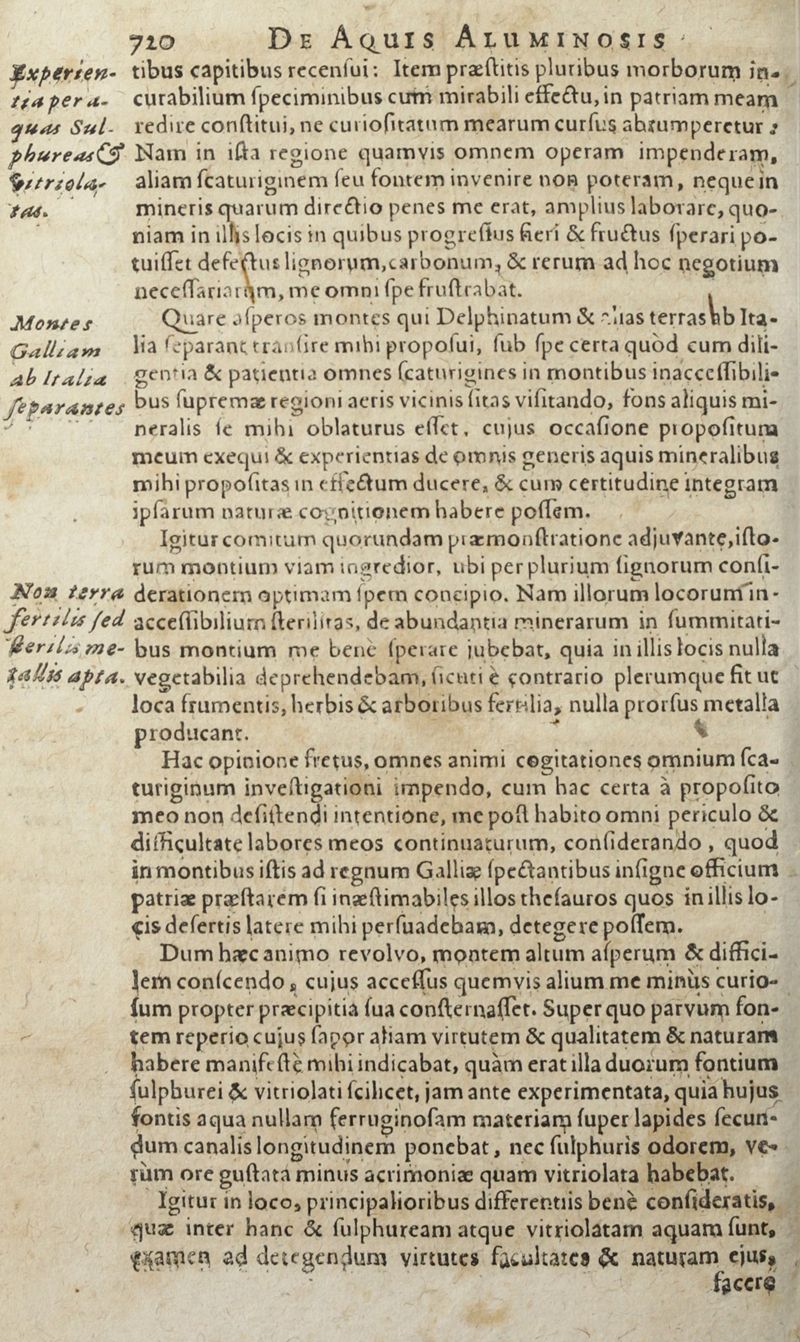 720 DE AQUIS ALUMINOSIS
Experien-
tia per a-
quas Sul-
phureas &
Vitriola-
tas.
tibus capitibus recenſui: Item præſtitis pluribus morborum in-
curabilium ſpeciminibus cum mirabili effectu, in patriam meam
redire conſtitui, ne curioſitatum mearum curſus abrumperetur:
Nam in iſta regione quamvis omnem operam impenderam,
aliam ſcaturiginem ſeu fontem invenire non poteram, neque in
mineris quarum directio penes me erat, amplius laborare, quo-
niam in illis locis in quibus progreſſus fieri & fructus ſperari po-
tuiſſet defectus lignorum, carbonum, & rerum ad hoc negotium
neceſſariarum, me omni ſpe fruſtrabat.
Montes
Galliam
ab Italia
ſeparantes
Quare aſperos montes qui Delphinatum & alias terras ab Ita-
lia ſeparant tranſire mihi propoſui, ſub ſpe certa quòd cum dili-
gentia & patientia omnes ſcaturigines in montibus inacceſſibili-
bus ſupremæ regioni aeris vicinis ſitas viſitando, fons aliquis mi-
neralis ſe mihi oblaturus eſſet, cujus occaſione propoſitum
meum exequi & experientias de omnis generis aquis mineralibus
mihi propoſitas in effectum ducere, & cum certitudine integram
ipſarum naturæ cognitionem habere poſſem.
Igitur comitum quorundam præmonſtratione adjuvante, iſto-
rum montium viam ingredior, ubi per plurium ſignorum conſi-
Non terra
fertilis ſed
ſterilis me-
tallis apta.
derationem optimam ſpem concipio. Nam illorum locorum in-
acceſſibilium ſterilitas, de abundantia minerarum in ſummitati-
bus montium me benè ſperare jubebat, quia in illis locis nulla
vegetabilia deprehendebam, ſicuti è contrario plerumque fit ut
loca frumentis, herbis & arboribus fertilia, nulla prorſus metalla
producant.
Hac opinione fretus, omnes animi cogitationes omnium ſca-
turiginum inveſtigationi impendo, cum hac certa à propoſito
meo non deſiſtendi intentione, me poſt habito omni periculo &
difficultate labores meos continuaturum, conſiderando, quod
in montibus iſtis ad regnum Galliæ ſpectantibus inſigne officium
patriæ præſtarem ſi inæſtimabiles illos theſauros quos in illis lo-
cis deſertis latere mihi perſuadebam, detegere poſſem.
Dum hæc animo revolvo, montem altum aſperum & diffici-
lem conſcendo, cujus acceſſus quemvis alium me minùs curio-
ſum propter præcipitia ſua conſternaſſet. Super quo parvum fon-
tem reperio cujus ſapor aliam virtutem & qualitatem & naturam
habere manifeſtè mihi indicabat, quàm erat illa duorum fontium
ſulphurei & vitriolati ſcilicet, jam ante experimentata, quia hujus
fontis aqua nullam ferruginoſam materiam ſuper lapides ſecun-
dum canalis longitudinem ponebat, nec ſulphuris odorem, ve-
rùm ore guſtata minus acrimoniæ quam vitriolata habebat.
Igitur in loco, principalioribus differentiis benè conſideratis,
quæ inter hanc & ſulphuream atque vitriolatam aquam ſunt,
examen ad detegendum virtutes facultates & naturam ejus,
facere